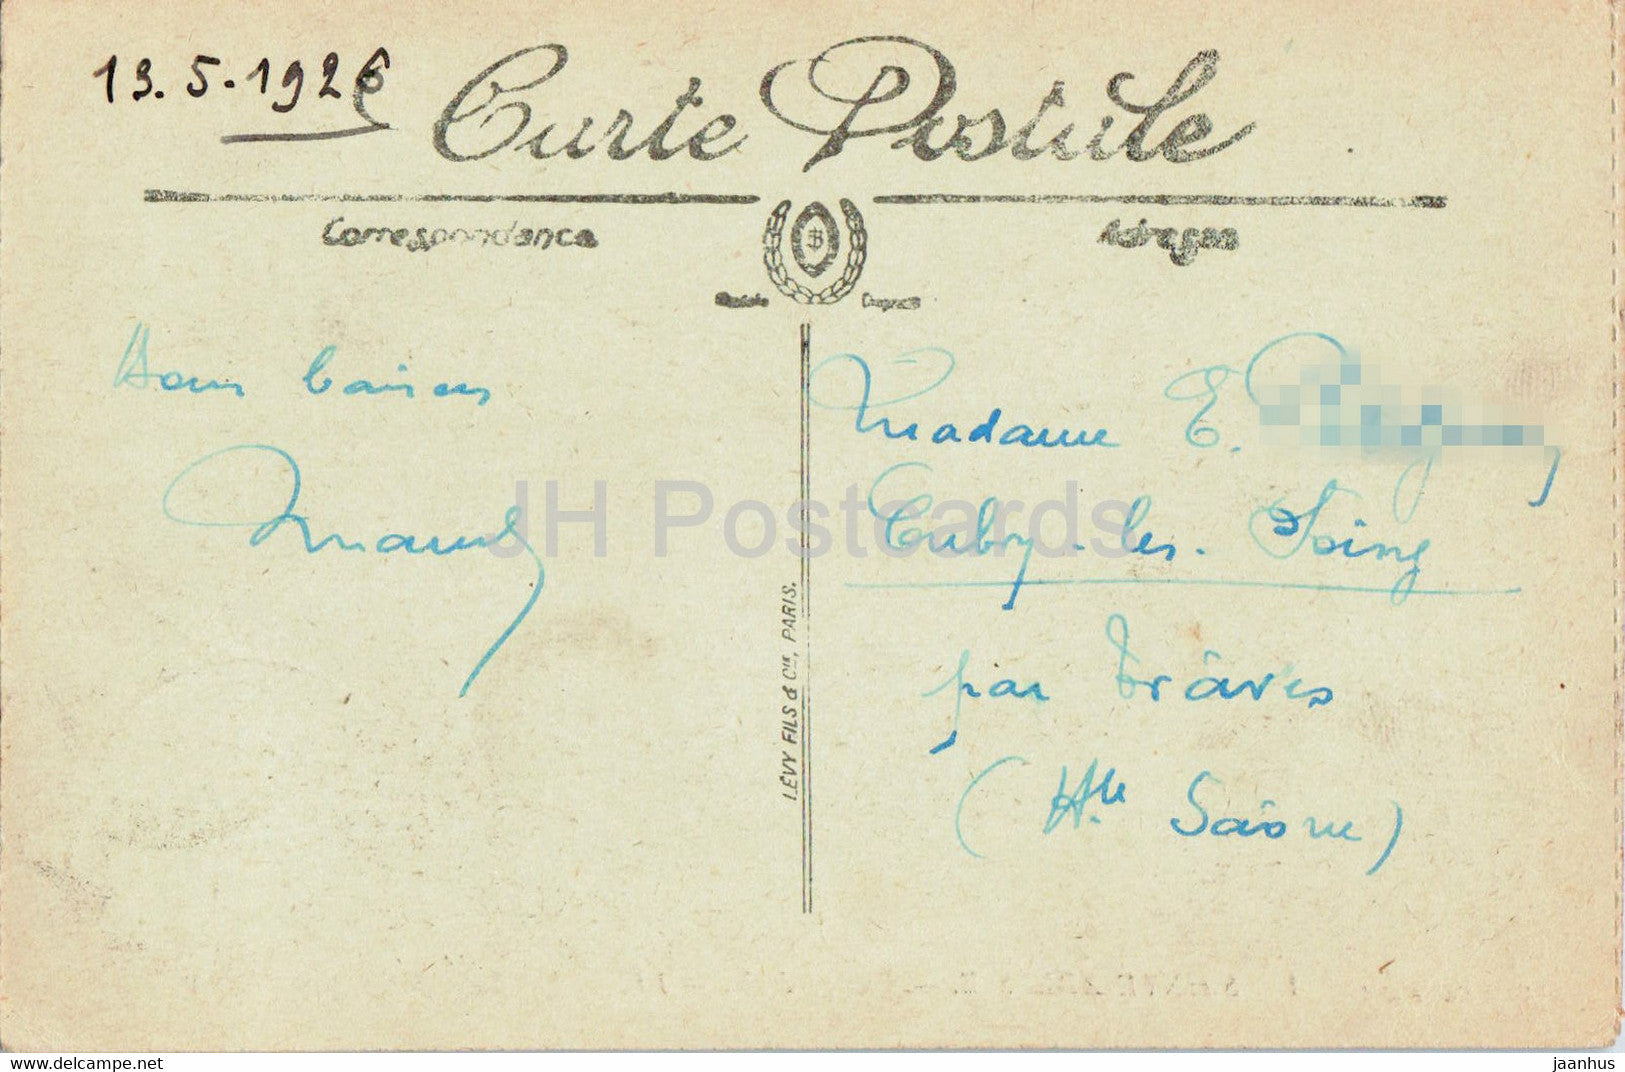 13.5.1926
Carte Postale
Correspondance
Adresse
Bons baisers
Madame E.
Maud
JH Postcards
Cubry-les-Soing
LÉVY FILS & Cie, PARIS.
par Trâves
(Hte Saône)
www.delcampe.net
jaanhus